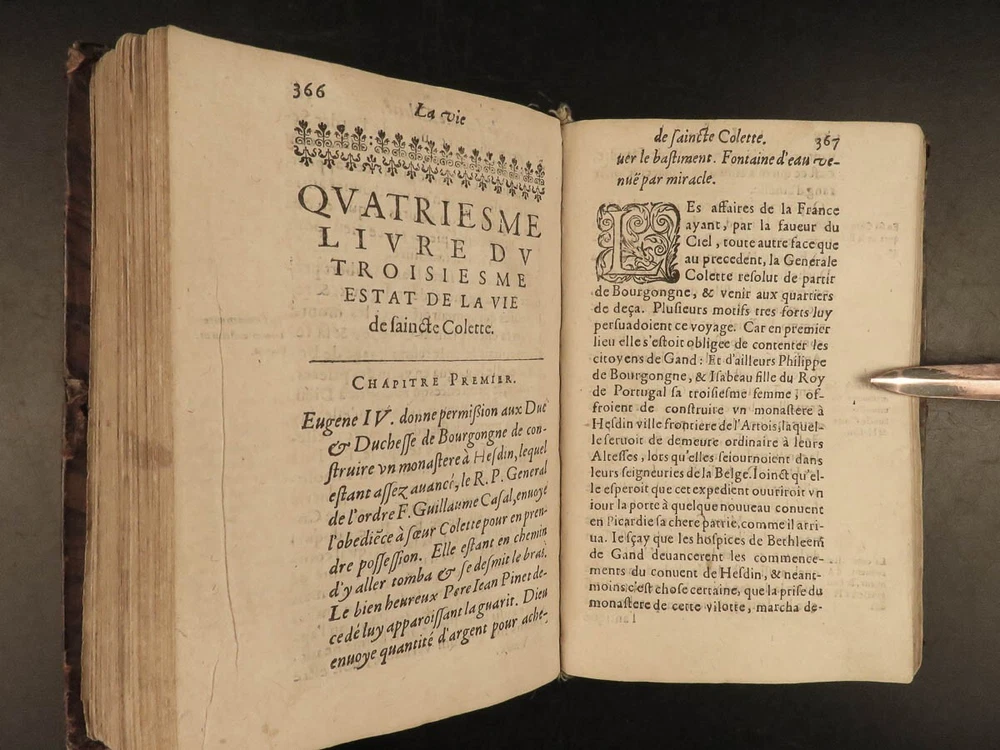 366
La vie
QVATRIESME
LIVRE DV
TROISIESME
ESTAT DE LA VIE
de saincte Colette.
CHAPITRE PREMIER.
Eugene IV. donne permißion aux Duc
& Duchesse de Bourgongne de con-
struire vn monastere à Hesdin, lequel
estant assez auancé, le R. P. General
de l'ordre F. Guillaume Casal, enuoye
l'obediēce à sœur Colette pour en pren-
dre possession. Elle estant en chemin
d'y aller tomba & se desmit le bras.
Le bien heureux Pere Iean Pinet de-
cedé luy apparoissant la guarit. Dieu
enuoye quantité d'argent pour ache-
de saincte Colette.
367
uer le bastiment. Fontaine d'eau ve-
nuë par miracle.
LEs affaires de la France
ayant, par la faueur du
Ciel, toute autre face que
au precedent, la Generale
Colette resolut de partir
de Bourgongne, & venir aux quartiers
de deça. Plusieurs motifs tres forts luy
persuadoient ce voyage. Car en premier
lieu elle s'estoit obligee de contenter les
citoyens de Gand: Et d'ailleurs Philippe
de Bourgongne, & Isabeau fille du Roy
de Portugal sa troisiesme femme, of-
froient de construire vn monastere à
Hesdin ville frontiere de l'Artois, laquel-
le seruoit de demeure ordinaire à leurs
Altesses, lors qu'elles seiournoient dans
leurs seigneuries de la Belge. Ioinct qu'el-
le esperoit que cet expedient ouuriroit vn
iour la porte à quelque nouueau conuent
en Picardie sa chere patrie, comme il arri-
ua. Ie sçay que les hospices de Bethleem
de Gand deuancerent les commence-
ments du conuent de Hesdin, & neant-
moins c'est chose certaine, que la prise du
monastere de cette vilotte, marcha de-